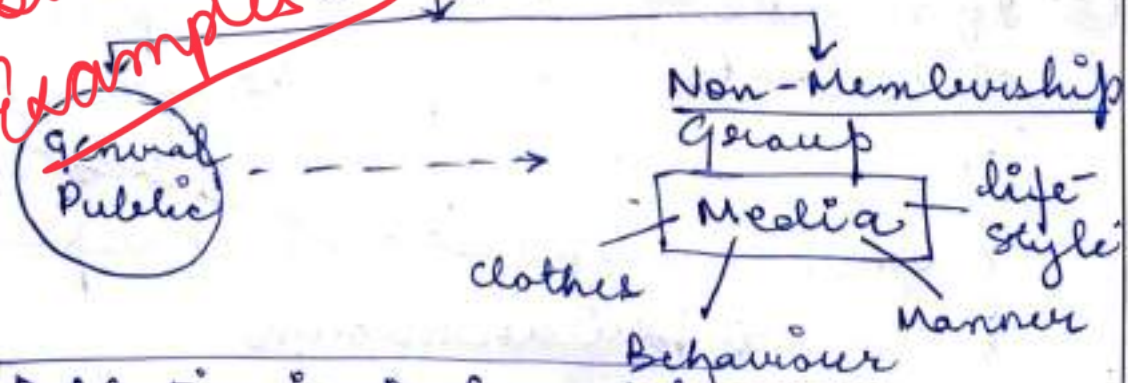 Examples
General
Public
Non-Membership
Group
Media
life-
style
Clothes
Manner
Behaviour